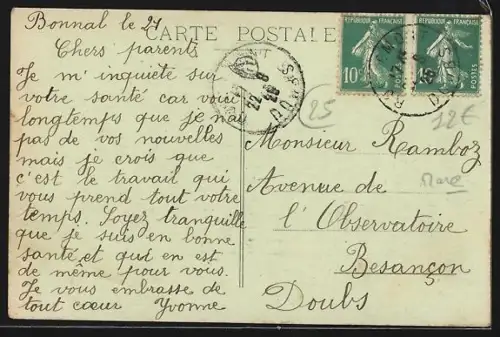 Bonnal le 21
CARTE POSTALE
Chers parents
Je m'inquiète sur
votre santé car voici
longtemps que je n'ai
pas de vos nouvelles
mais je crois que
c'est le travail qui
vous prend tout votre
temps. Soyez tranquille
que je suis en bonne
santé et qu'il en est
de même pour vous.
Je vous embrasse de
tout cœur Yvonne
RÉPUBLIQUE FRANÇAISE
10c
POSTES
RÉPUBLIQUE FRANÇAISE
POSTES
22
8
28
DOUBS
25
12€
Monsieur Ramboz
Avenue de
l'Observatoire
Besançon
Doubs